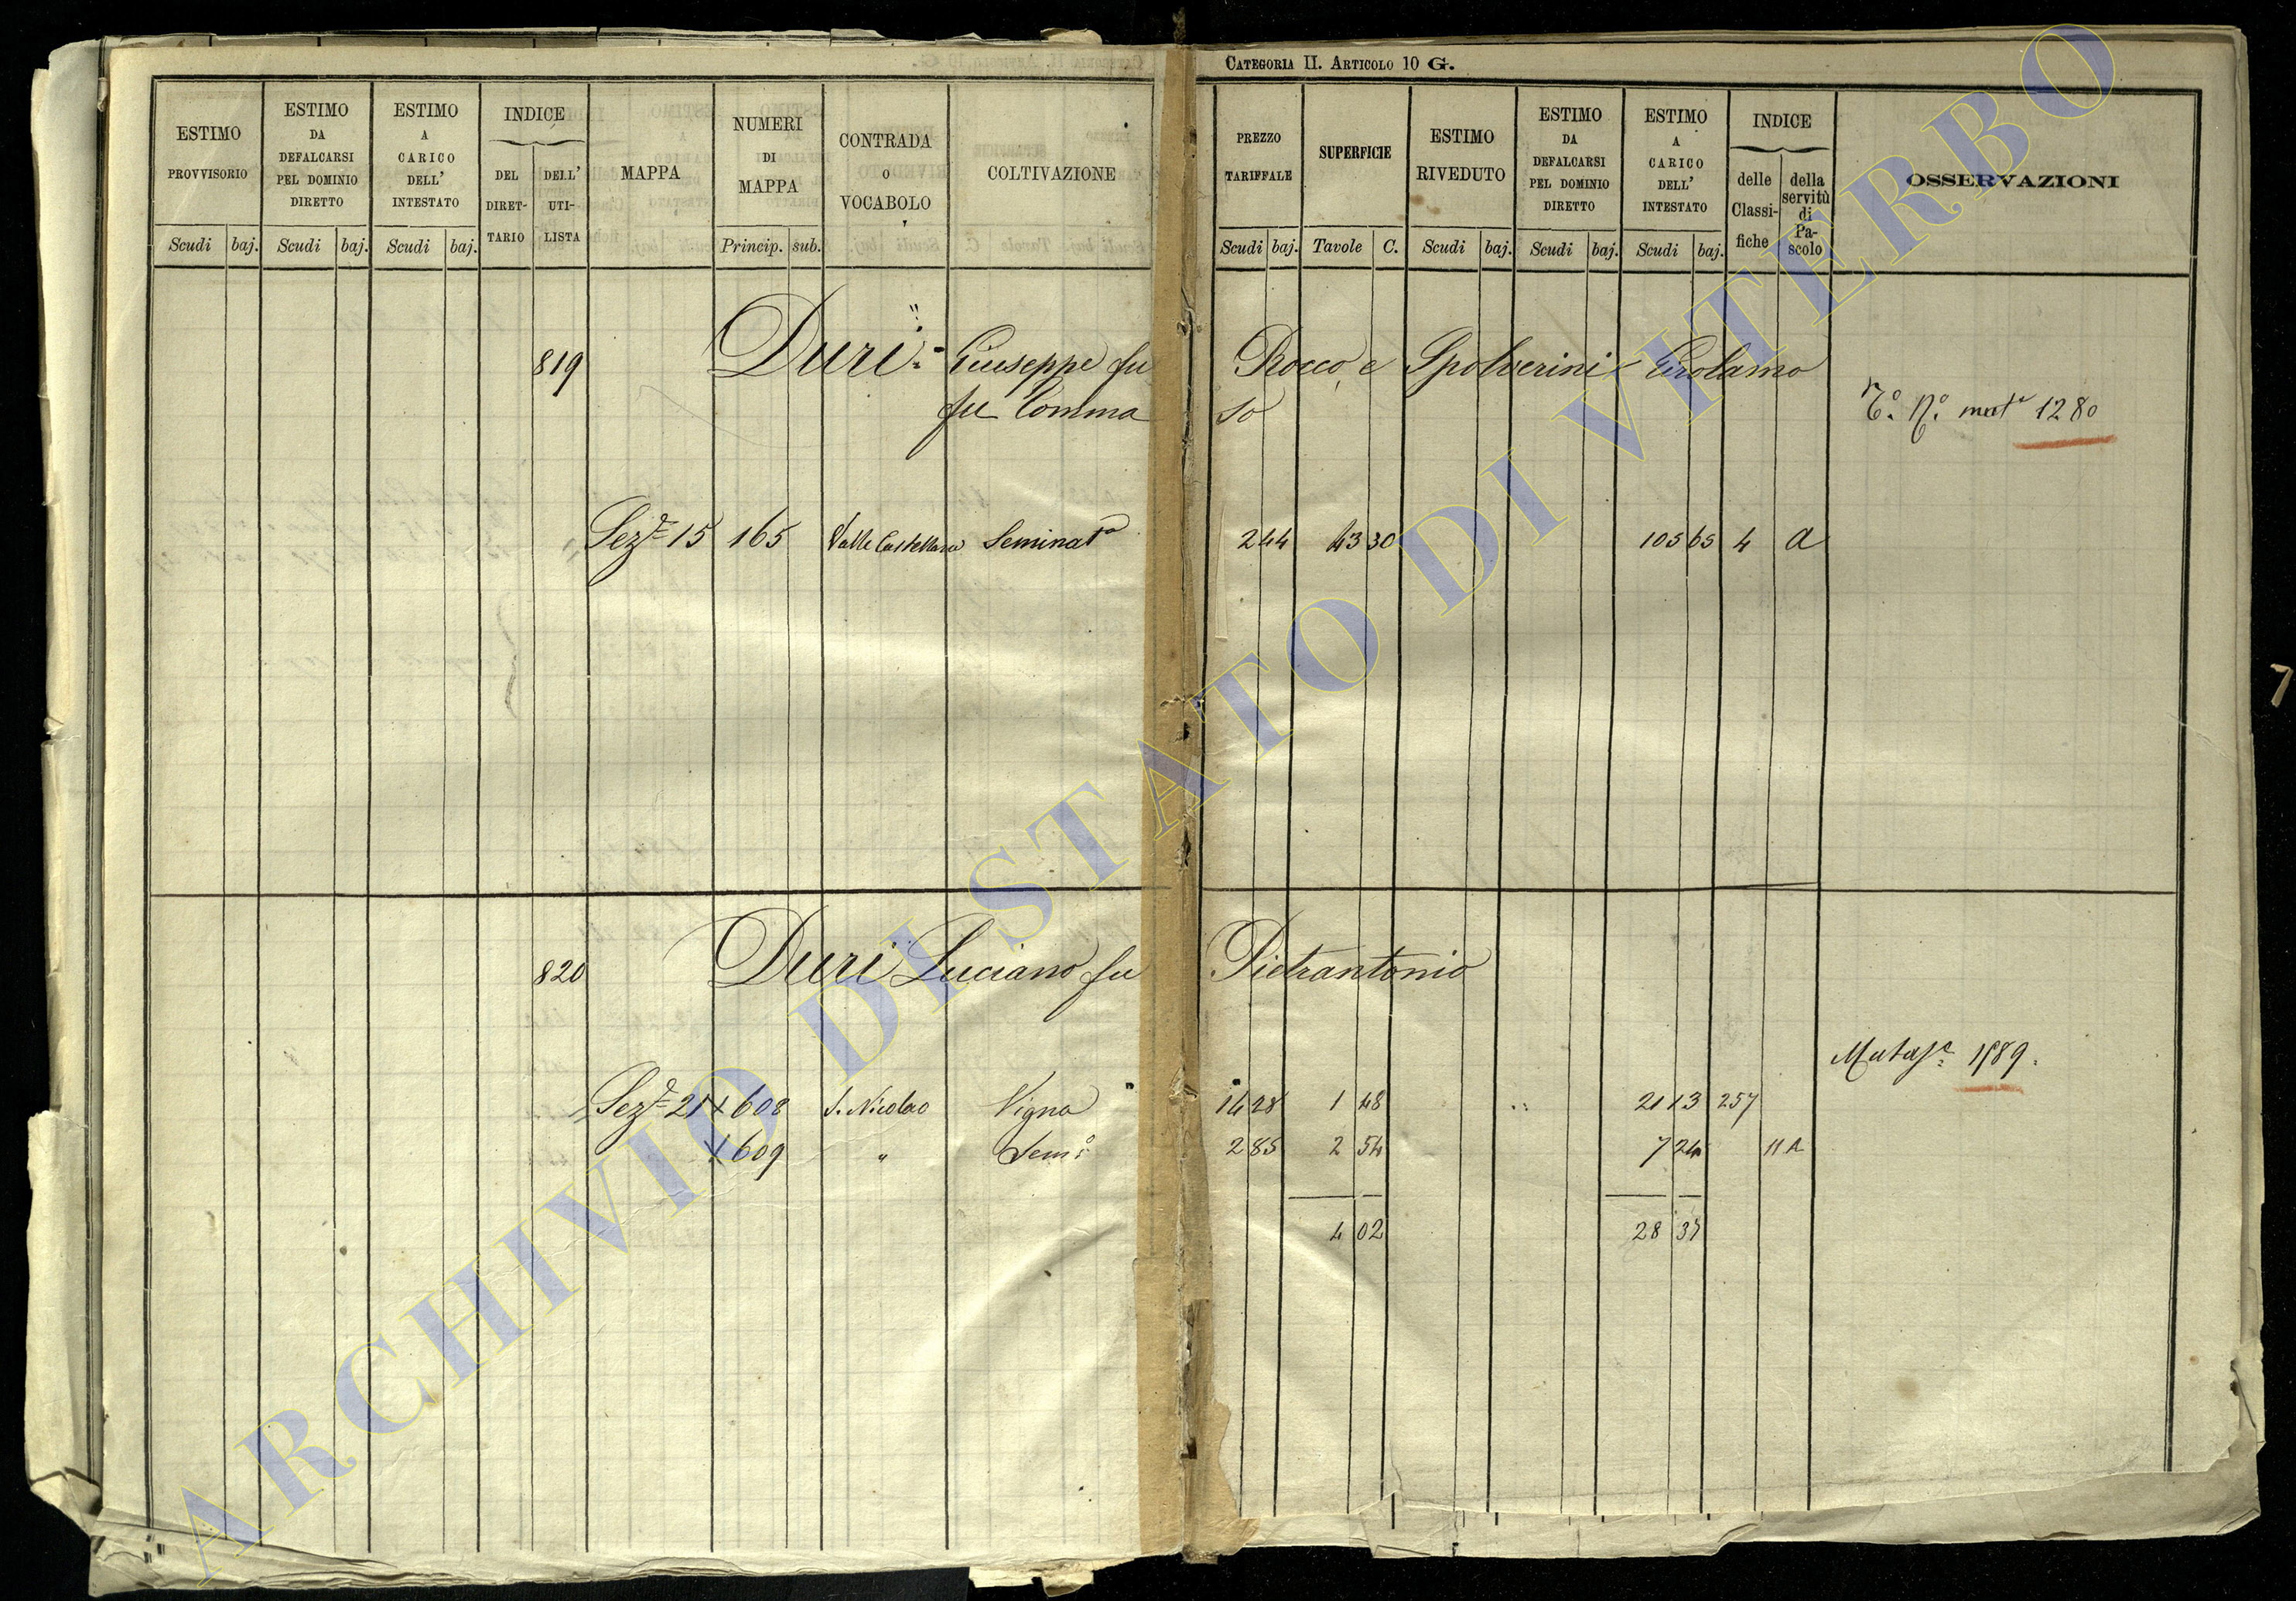 CATEGORIA II. ARTICOLO 10 G.
ESTIMO PROVVISORIO
Scudi baj.
ESTIMO DA DEFALCARSI PEL DOMINIO DIRETTO
Scudi baj.
ESTIMO A CARICO DELL' INTESTATO
Scudi baj.
INDICE
DEL DIRET-TARIO
DELL' UTI-LISTA
MAPPA
NUMERI DI MAPPA
Princip. sub.
CONTRADA O VOCABOLO
COLTIVAZIONE
PREZZO TARIFFALE
Scudi baj.
SUPERFICIE
Tavole C.
ESTIMO RIVEDUTO
Scudi baj.
ESTIMO DA DEFALCARSI PEL DOMINIO DIRETTO
Scudi baj.
ESTIMO A CARICO DELL' INTESTATO
Scudi baj.
INDICE
delle Classi-fiche
della servitù di Pa-scolo
OSSERVAZIONI
819 Duri Giuseppe fu Rocco e Spolverini Girolamo
fu Tommaso
1280
Sez.e 15 165 Valle Castellana Seminat.o 2 44 43 30 105 65 4 A
820 Duri Luciano fu Pietrantonio
1189.
Sez.e 21 + 608 S. Nicolao Vigna 14 28 1 48 21 13 257
+ 609 " Sem.o 2 85 2 54 7 24 11 A
4 02 28 37
7
ARCHIVIO DI STATO DI VITERBO